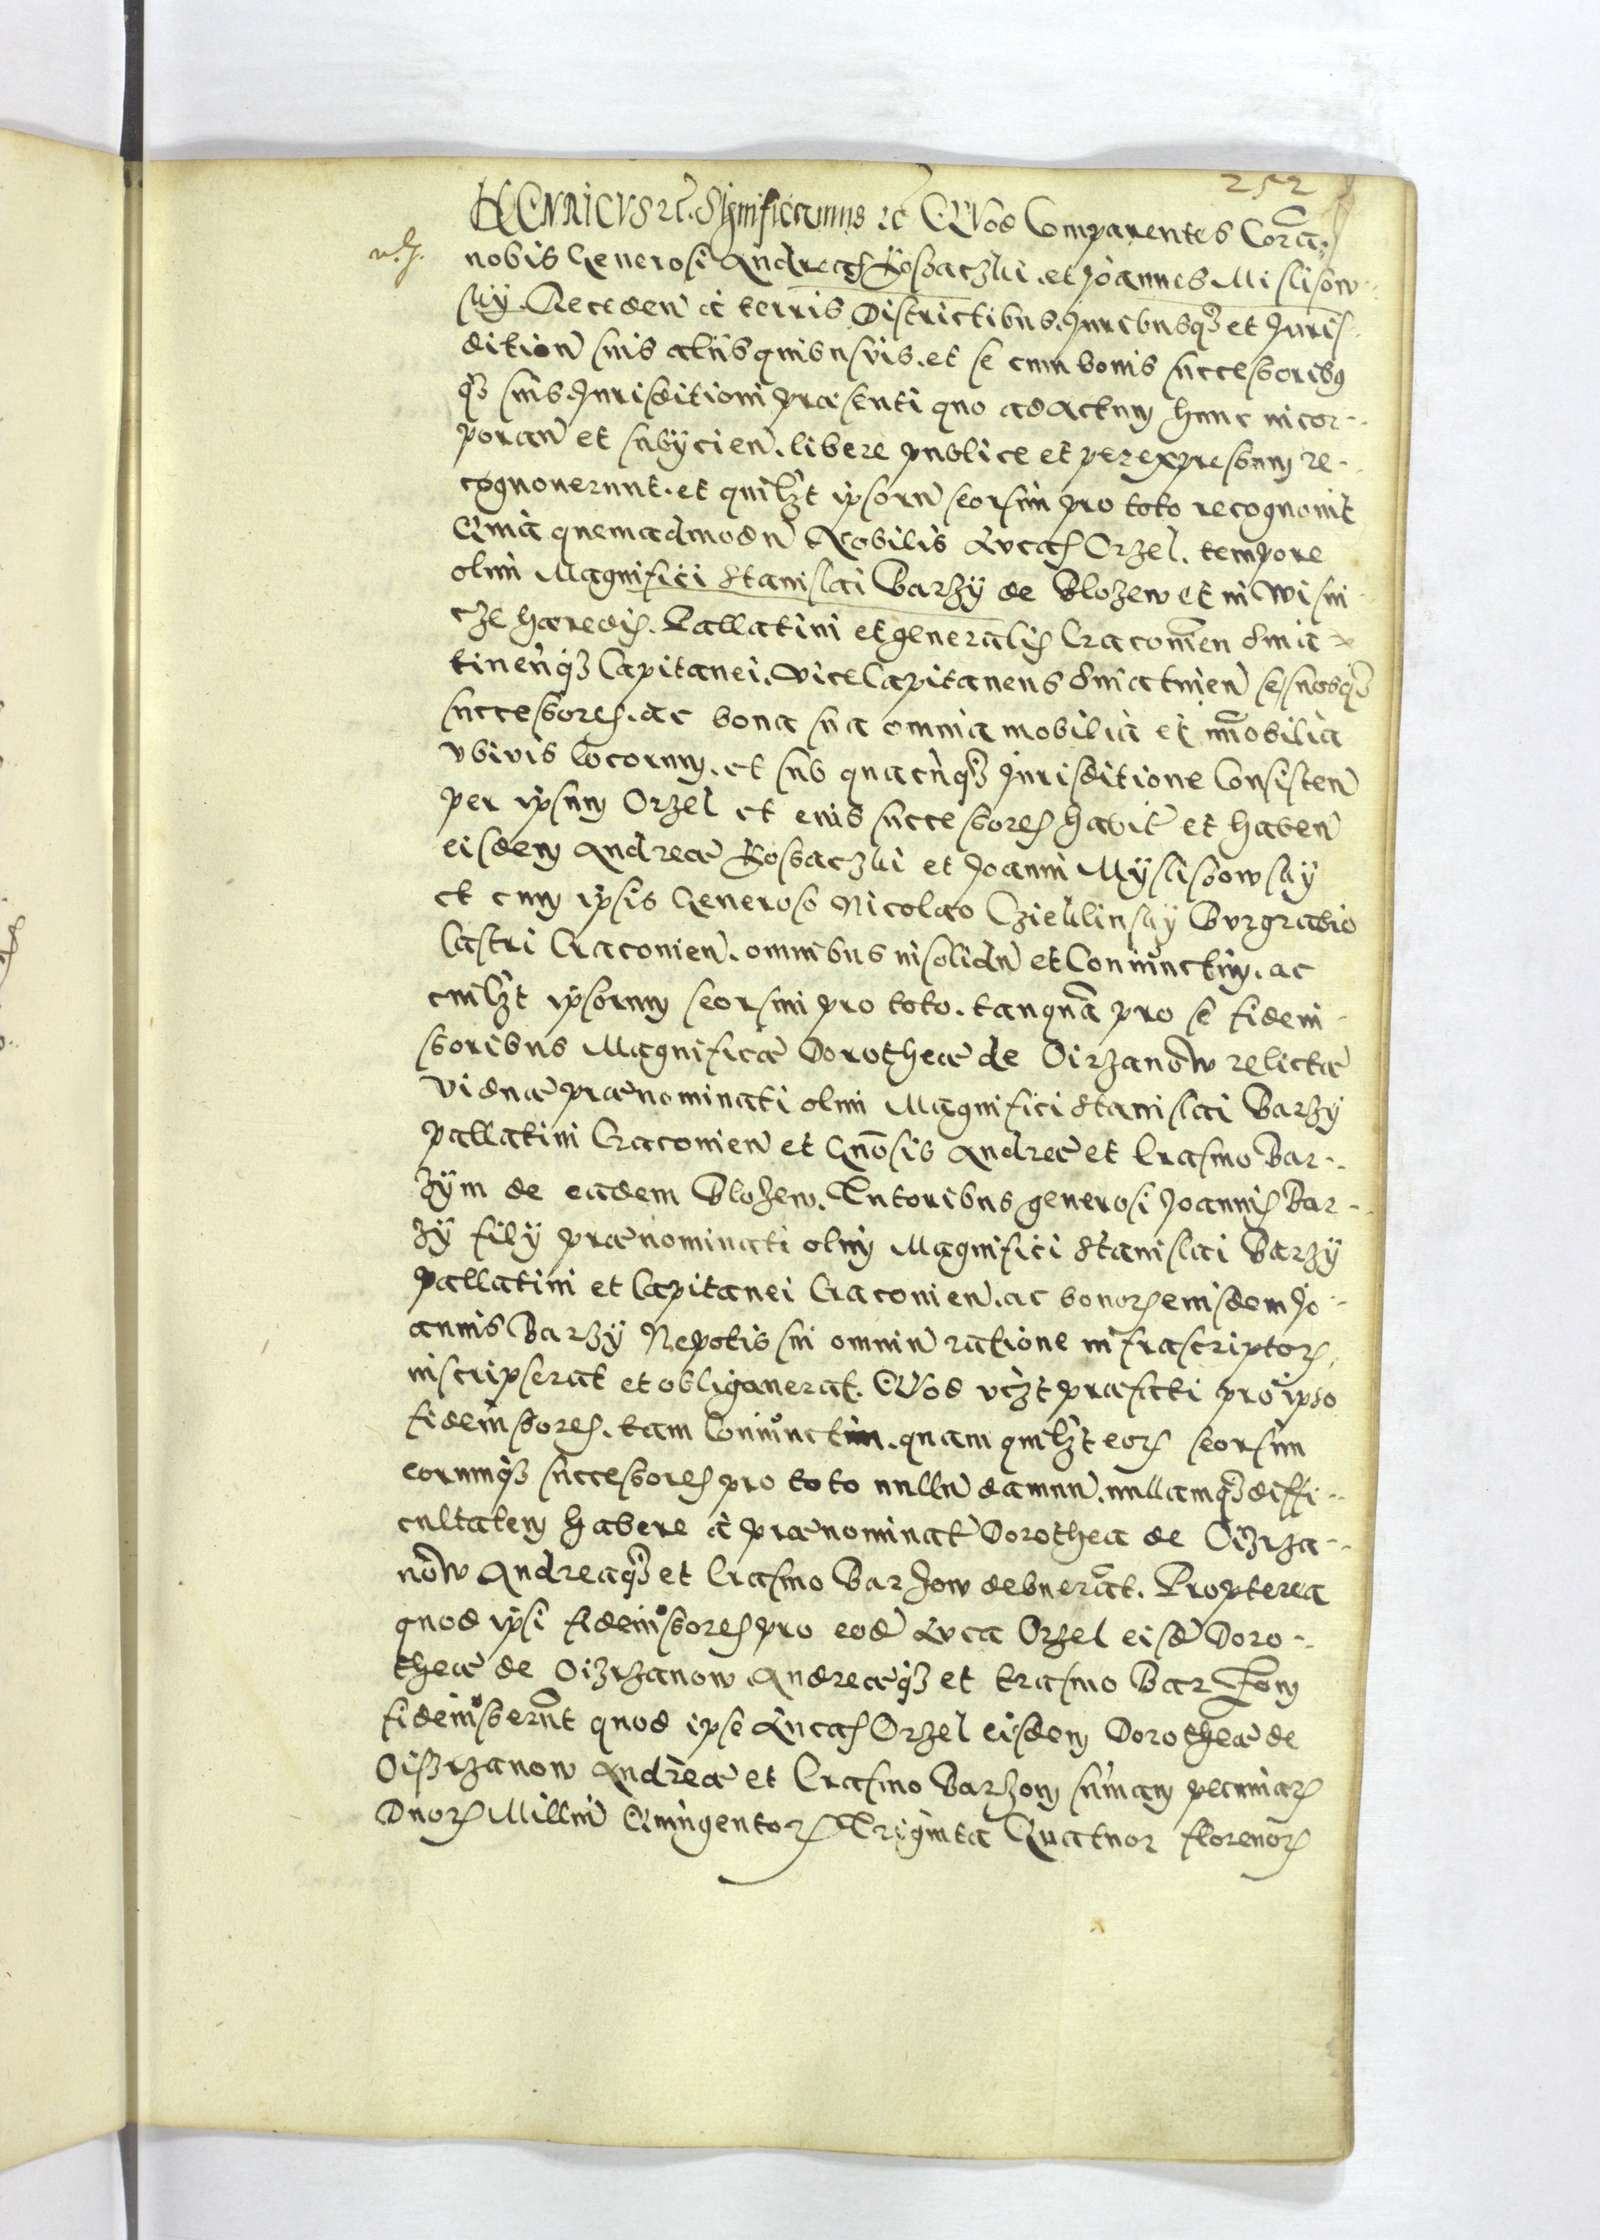 252
HENRICVS etc. Significamus etc Quod Comparentes Corã
nobis Generosi Andreas Rosbaczki et Joannes Mislisow
sky. Receden à terris Districtibus. Juribusq3 et Juris
dition suis aliis quibusuis. et se cum bonis successorib9
q3 suis. Jurisditioni præsenti quo ad actum hunc incor
poran et subijcien. libere publice et per expressum re
cognouerunt. et quilz't ipsorũ seorsim pro toto recognouit
Quia quemadmodũ Nobilis Lucas Orzel. tempore
olim Magnifici Stanislai Barzÿ de Blozew et in Wisni
cze hæredis. Pallatini et generalis Cracouien Snia
tinenq3 Capitanei. ViceCapitaneus Sniatinen se suosq3
successores. ac bona sua omnia mobilia et im̃obilia
vbiuis locorum. et sub quacunq3 Jurisditione Consisten
per ipsum Orzel et euis successores habit et haben
eisdem Andreæ Rosbaczki et Joanni Myslisowsky
et cum ipsis Generoso Nicolao Czieklinsky Burgrabio
Castri Cracouien. omnibus insolidũ et Coniunctim. ac
cuilz't ipsorum seorsim pro toto. tanquã pro se fideiu
soribus Magnificæ Dorotheæ de Oirzanow relictæ
viduæ prænominati olim Magnifici Stanislai Barzÿ
Pallatini Cracouien et Gnõsis Andreæ et Erasmo Bar
zÿm de eadem Blozew. Tutoribus generosi Joannis Bar
zÿ filÿ prænominati olim Magnifici Stanislai Barzÿ
Pallatini et Capitanei Cracouien. ac bonor. eiusdem Jo
annis Barzÿ Nepotis sui omniũ ratione infrascriptor.
inscripserat et obligauerat. Quod vcz't præfati pro ipso
fideiussores. tam Coniunctim. quam quilz't eor. seorsim
eorumq3 successores pro toto nullũ damnũ. nullamq3 diffi
cultatem habere à prænominat Dorothea de Oizrza
now Andreaq3 et Erasmo Barzow debuerãt. Propterea
quod ipsi fideiussores pro eodẽ Luca Orzel eisdẽ Doro
theæ de Oizrzanow Andreæq3 et Erasmo Barzom
fideiusserũt quod ipse Lucas Orzel eisdem Dorotheæ de
Oiszrzanow Andreæ et Erasmo Barzom sum̃am pecuniar.
Duor. Milliũ Quingentor. Triginta Quatuor florenor.